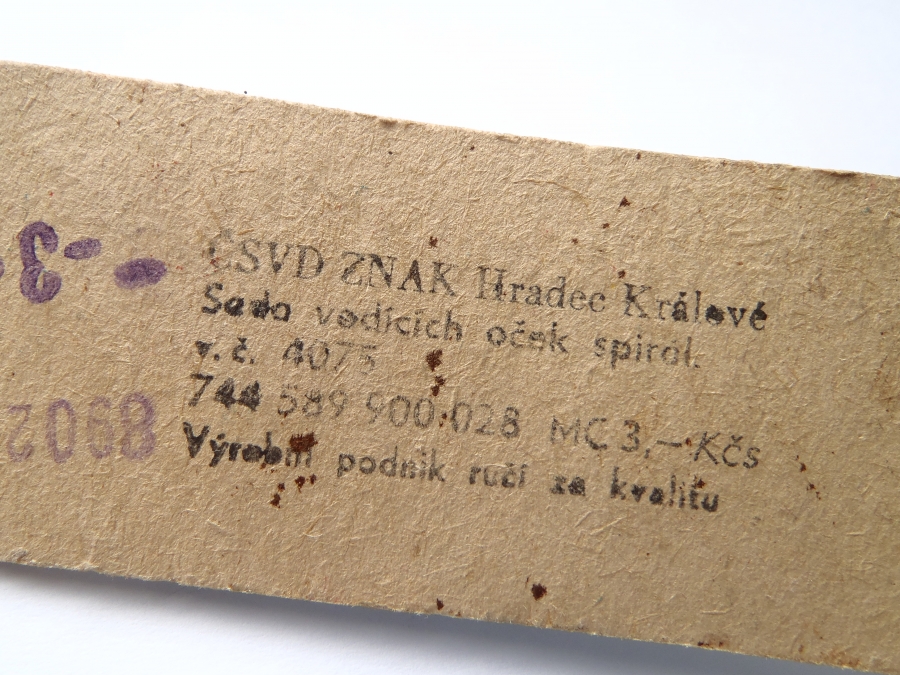 ČSVD ZNAK Hradec Králové
Sada vodicích oček spirál.
v. č. 4075
744 589 900 028 MC 3,- Kčs
Výrobní podnik ručí za kvalitu
-3-
8902